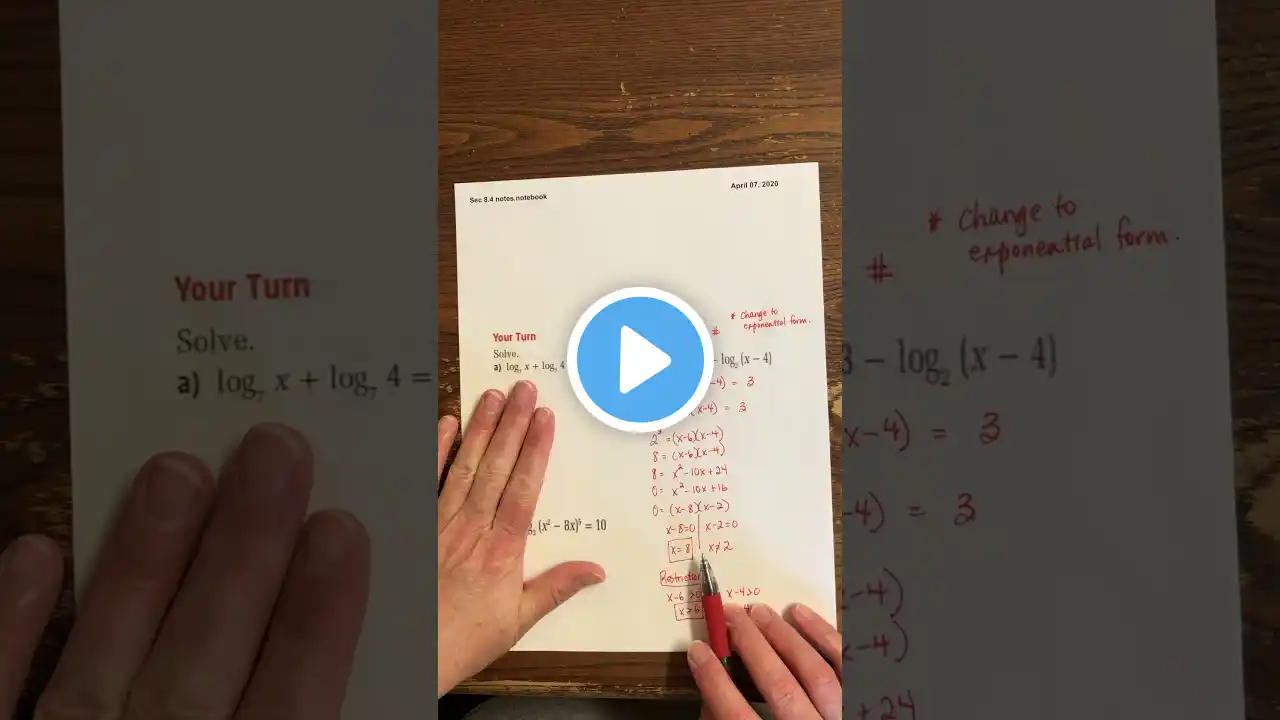 Sec 8.4 notes.notebook
April 07, 2020
Your Turn
Solve.
a) log₇ x + log₇ 4
(x² − 8x)⁵ = 10
#
* Change to
exponential form.
− log₂ (x − 4)
-4) = 3
(x-4) = 3
2³ = (x-6)(x-4)
8 = (x-6)(x-4)
8 = x² - 10x + 24
0 = x² - 10x + 16
0 = (x-8)(x-2)
x-8=0
x-2=0
x = 8
x ≠ 2
x-6 > 0
x-4 > 0
x > 6
4
Your Turn
Solve.
a) log₇ x + log₇ 4 =
#
* Change to
exponential form.
− log₂ (x − 4)
x-4) = 3
-4) = 3
x-4)
x-4)
+ 24